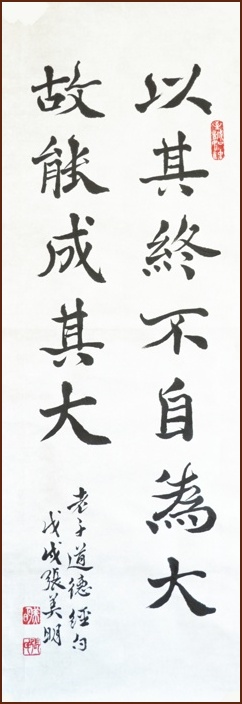 以其終不自為大
故能成其大
老子道德經句
戊戌張美明